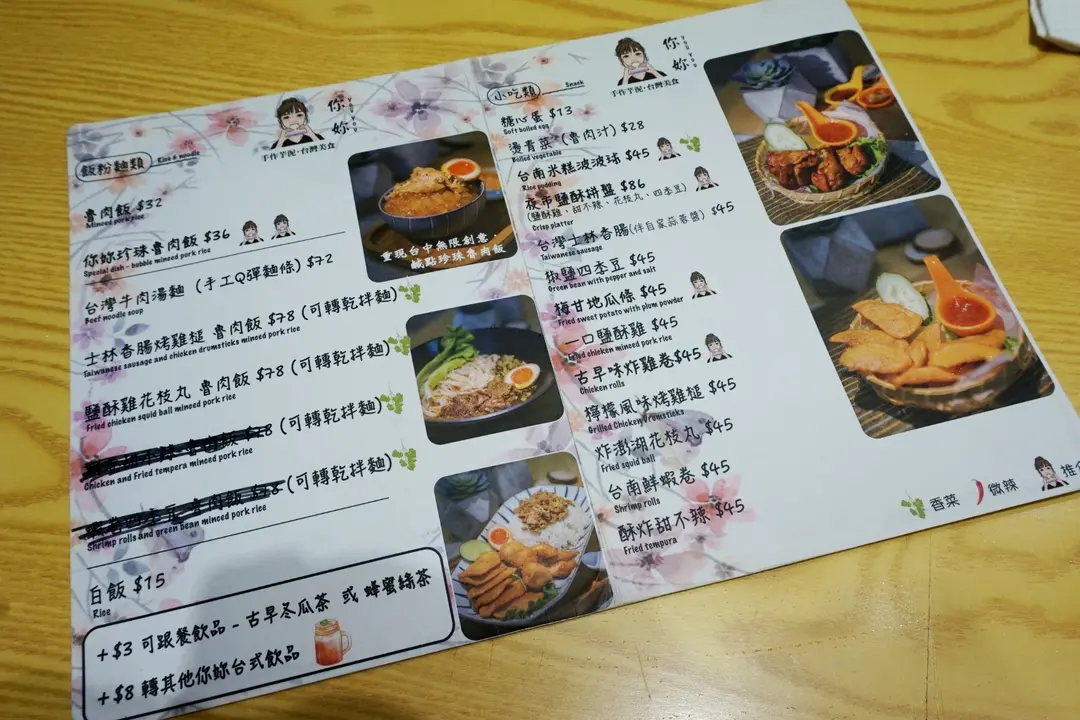 飯粉麵類 Rice & noodle
你
妳
YOU YOU
手作芋泥·台灣美食
魯肉飯 $32
Minced pork rice
你妳珍珠魯肉飯 $36
Special dish - bobble minced pork rice
台灣牛肉湯麵 (手工Q彈麵條) $72
Beef noodle soup
士林香腸烤雞槌 魯肉飯 $78 (可轉乾拌麵)
Taiwanese sausage and chicken drumsticks minced pork rice
鹽酥雞花枝丸 魯肉飯 $78 (可轉乾拌麵)
Fried chicken squid ball minced pork rice
8 (可轉乾拌麵)
Chicken and Fried tempera minced pork rice
(可轉乾拌麵)
Shrimp rolls and green bean minced pork rice
白飯 $15
Rice
+$3 可跟餐飲品 - 古早冬瓜茶 或 蜂蜜綠茶
+$8 轉其他你妳台式飲品
重現台中無限創意,
鹹點珍珠魯肉飯
小吃類 Snack
你
妳
YOU YOU
手作芋泥·台灣美食
糖心蛋 $13
Soft boiled egg
燙青菜 (魯肉汁) $28
Boiled vegetable
台南米糕波波球 $45
Rice pudding
夜市鹽酥拼盤 $86
(鹽酥雞、甜不辣、花枝丸、四季豆)
Crisp platter
台灣士林香腸(伴自家蒜蓉醬) $45
Taiwanese sausage
椒鹽四季豆 $45
Green bean with pepper and salt
梅甘地瓜條 $45
Fried sweet potato with plum powder
一口鹽酥雞 $45
Fried chicken minced pork rice
古早味炸雞卷$45
Chicken rolls
檸檬風味烤雞槌 $45
Grilled Chicken Drumsticks
炸澎湖花枝丸 $45
Fried squid ball
台南鮮蝦卷 $45
Shrimp rolls
酥炸甜不辣 $45
Fried tempura
香菜 微辣 推